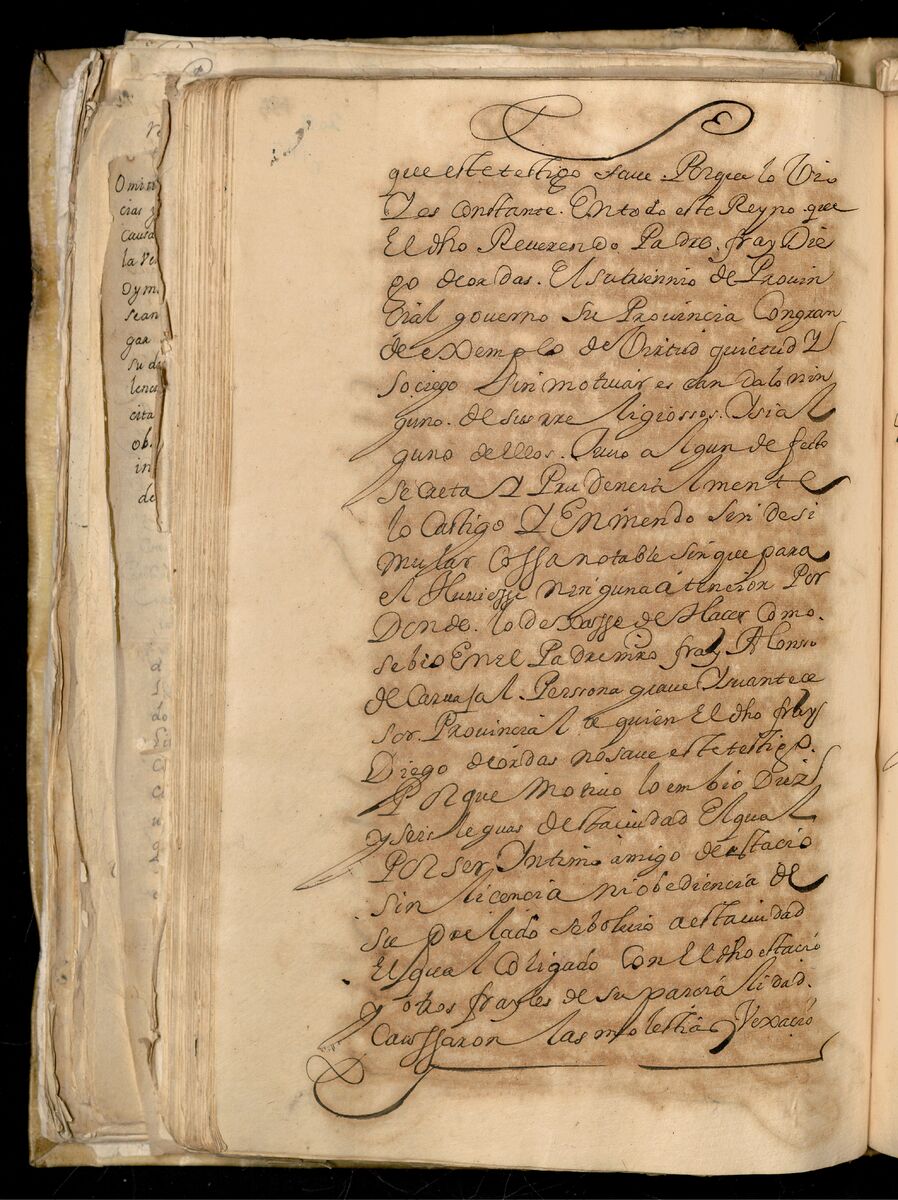 que este testigo save. Porque lo Vio
Y es Constante. En todo este Reyno que
El dho Reverendo Padre. fray Die
go de ordas. El subtriennio de Provin
cial governo su Provincia Con gran
de exemplo de Virtud quietud Y
Sociego Sin motivar escandalo nin
guno. de sus rreligiossos. Y si al
guno dellos. tuvo algun defecto
secreta Y Prudencialmente
lo Castigo Y Enmendo sin desi
mular Cossa notable sin que para
el Huviesse ninguna atencion Por
Donde. lo dexasse de Hacer Como.
se bio En el Padre mro fray Alonso
de Carvajal. Persona grave Y su antece
sor. Provincial a quien El dho fray
Diego de ordas no save este testigo.
Porque motivo lo embio Diez
y seis leguas desta ciudad El qual
Por ser Yntimo amigo de estacio
sin licencia ni obediencia de
su prelado se bolvio a esta ciudad
El qual Coligado Con El dho estacio
y otros frayles de su parcialidad.
Caussaron las molestias Y Vexacio
Omiti
cias y
causa
la Ve
Oym
sean
gar
su d
lenci
cita
ob.
in
de